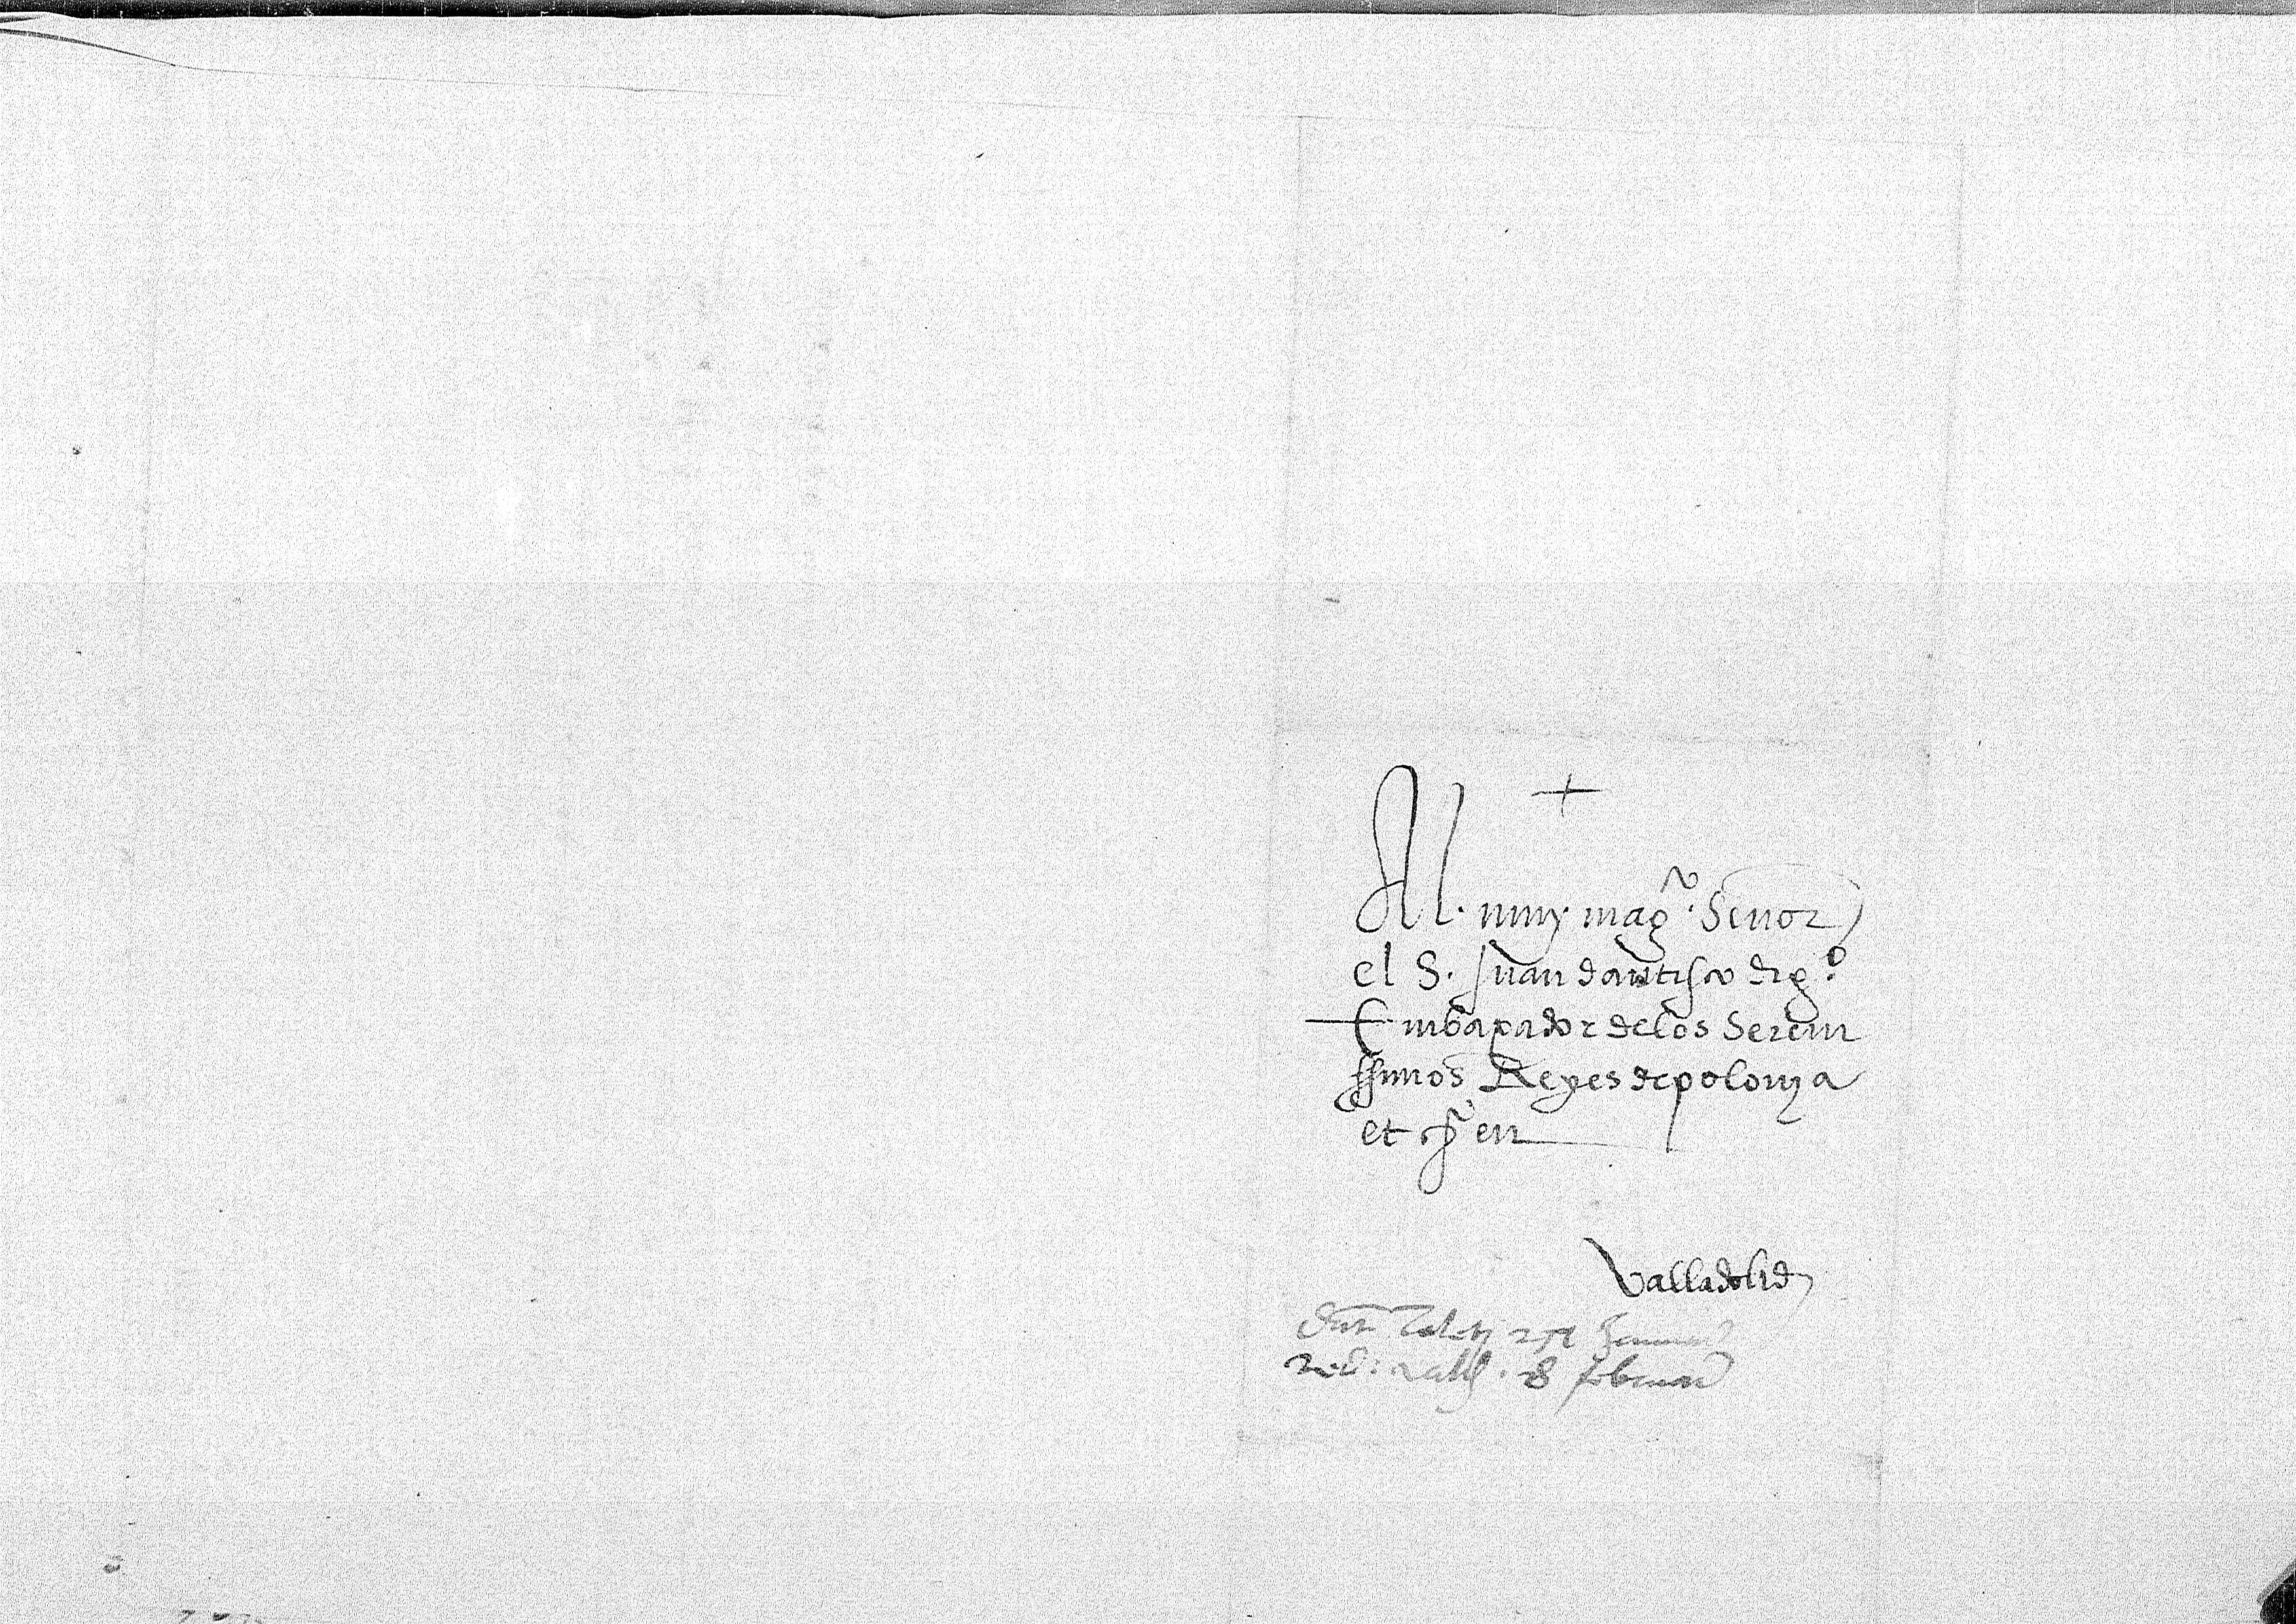 +
Al. muy. mag.co Señor
el S. Juan dantisco dig.o
Embaxador delos Sereni
ssimos Reyes depolonya
et en
Valladolid
8 februarii